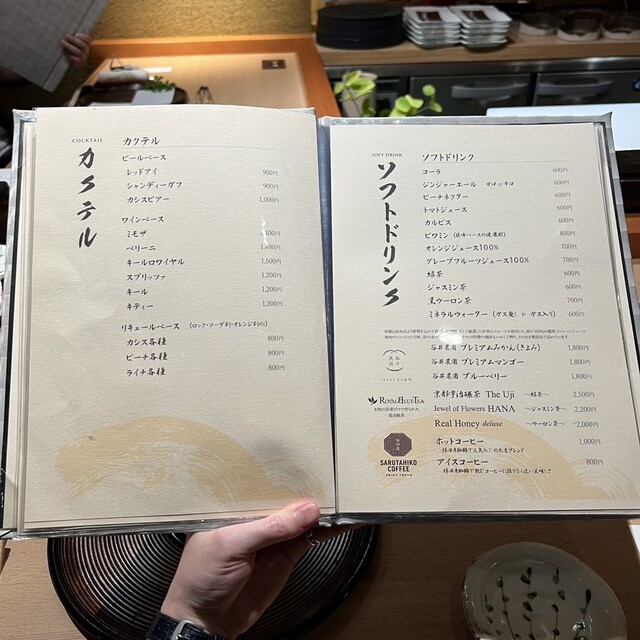 COCKTAIL
カクテル
カクテル
ビールベース
レッドアイ 900円
シャンディーガフ 900円
カシスビアー 1,000円
ワインベース
ミモザ
ベリーニ
キールロワイヤル 1,500円
スプリッツァ 1,200円
キール 1,200円
キティー 1,200円
リキュールベース (ロック・ソーダ割・オレンジ割り)
カシス各種 800円
ピーチ各種 800円
ライチ各種 800円
SOFT DRINK
ソフトドリンク
ソフトドリンク
コーラ 600円
ジンジャーエール 甘口 辛口 600円
ピーチネクター 600円
トマトジュース 600円
カルピス 600円
ビワミン 800円
オレンジジュース100% 700円
グレープフルーツジュース100% 700円
緑茶 600円
ジャスミン茶 600円
黒ウーロン茶 700円
ミネラルウォーター (ガス無し or ガス入り) 600円
谷井農園 プレミアムみかん(きよみ) 1,800円
谷井農園 プレミアムマンゴー 1,800円
谷井農園 ブルーベリー 1,800円
ROYALBLUETEA
京都宇治碾茶 The Uji ～緑茶～ 2,500円
Jewel of Flowers HANA ～ジャスミン茶～ 2,200円
Real Honey deluxe ～ウーロン茶～ 2,000円
SARUTAHIKO
COFFEE
ホットコーヒー 1,000円
アイスコーヒー 800円